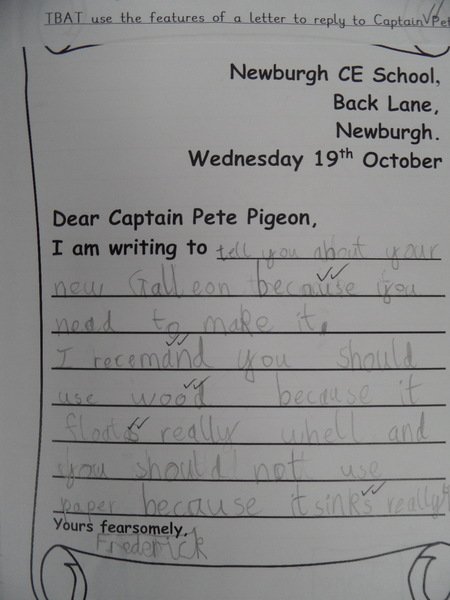 TBAT use the features of a letter to reply to Captain Pet
Newburgh CE School,
Back Lane,
Newburgh.
Wednesday 19th October
Dear Captain Pete Pigeon,
I am writing to tell you about your
new Galleon because you
need to make it.
I recemand you should
use wood because it
floats really whell and
you should not use
paper because it sinks really
Yours fearsomely,
Frederick